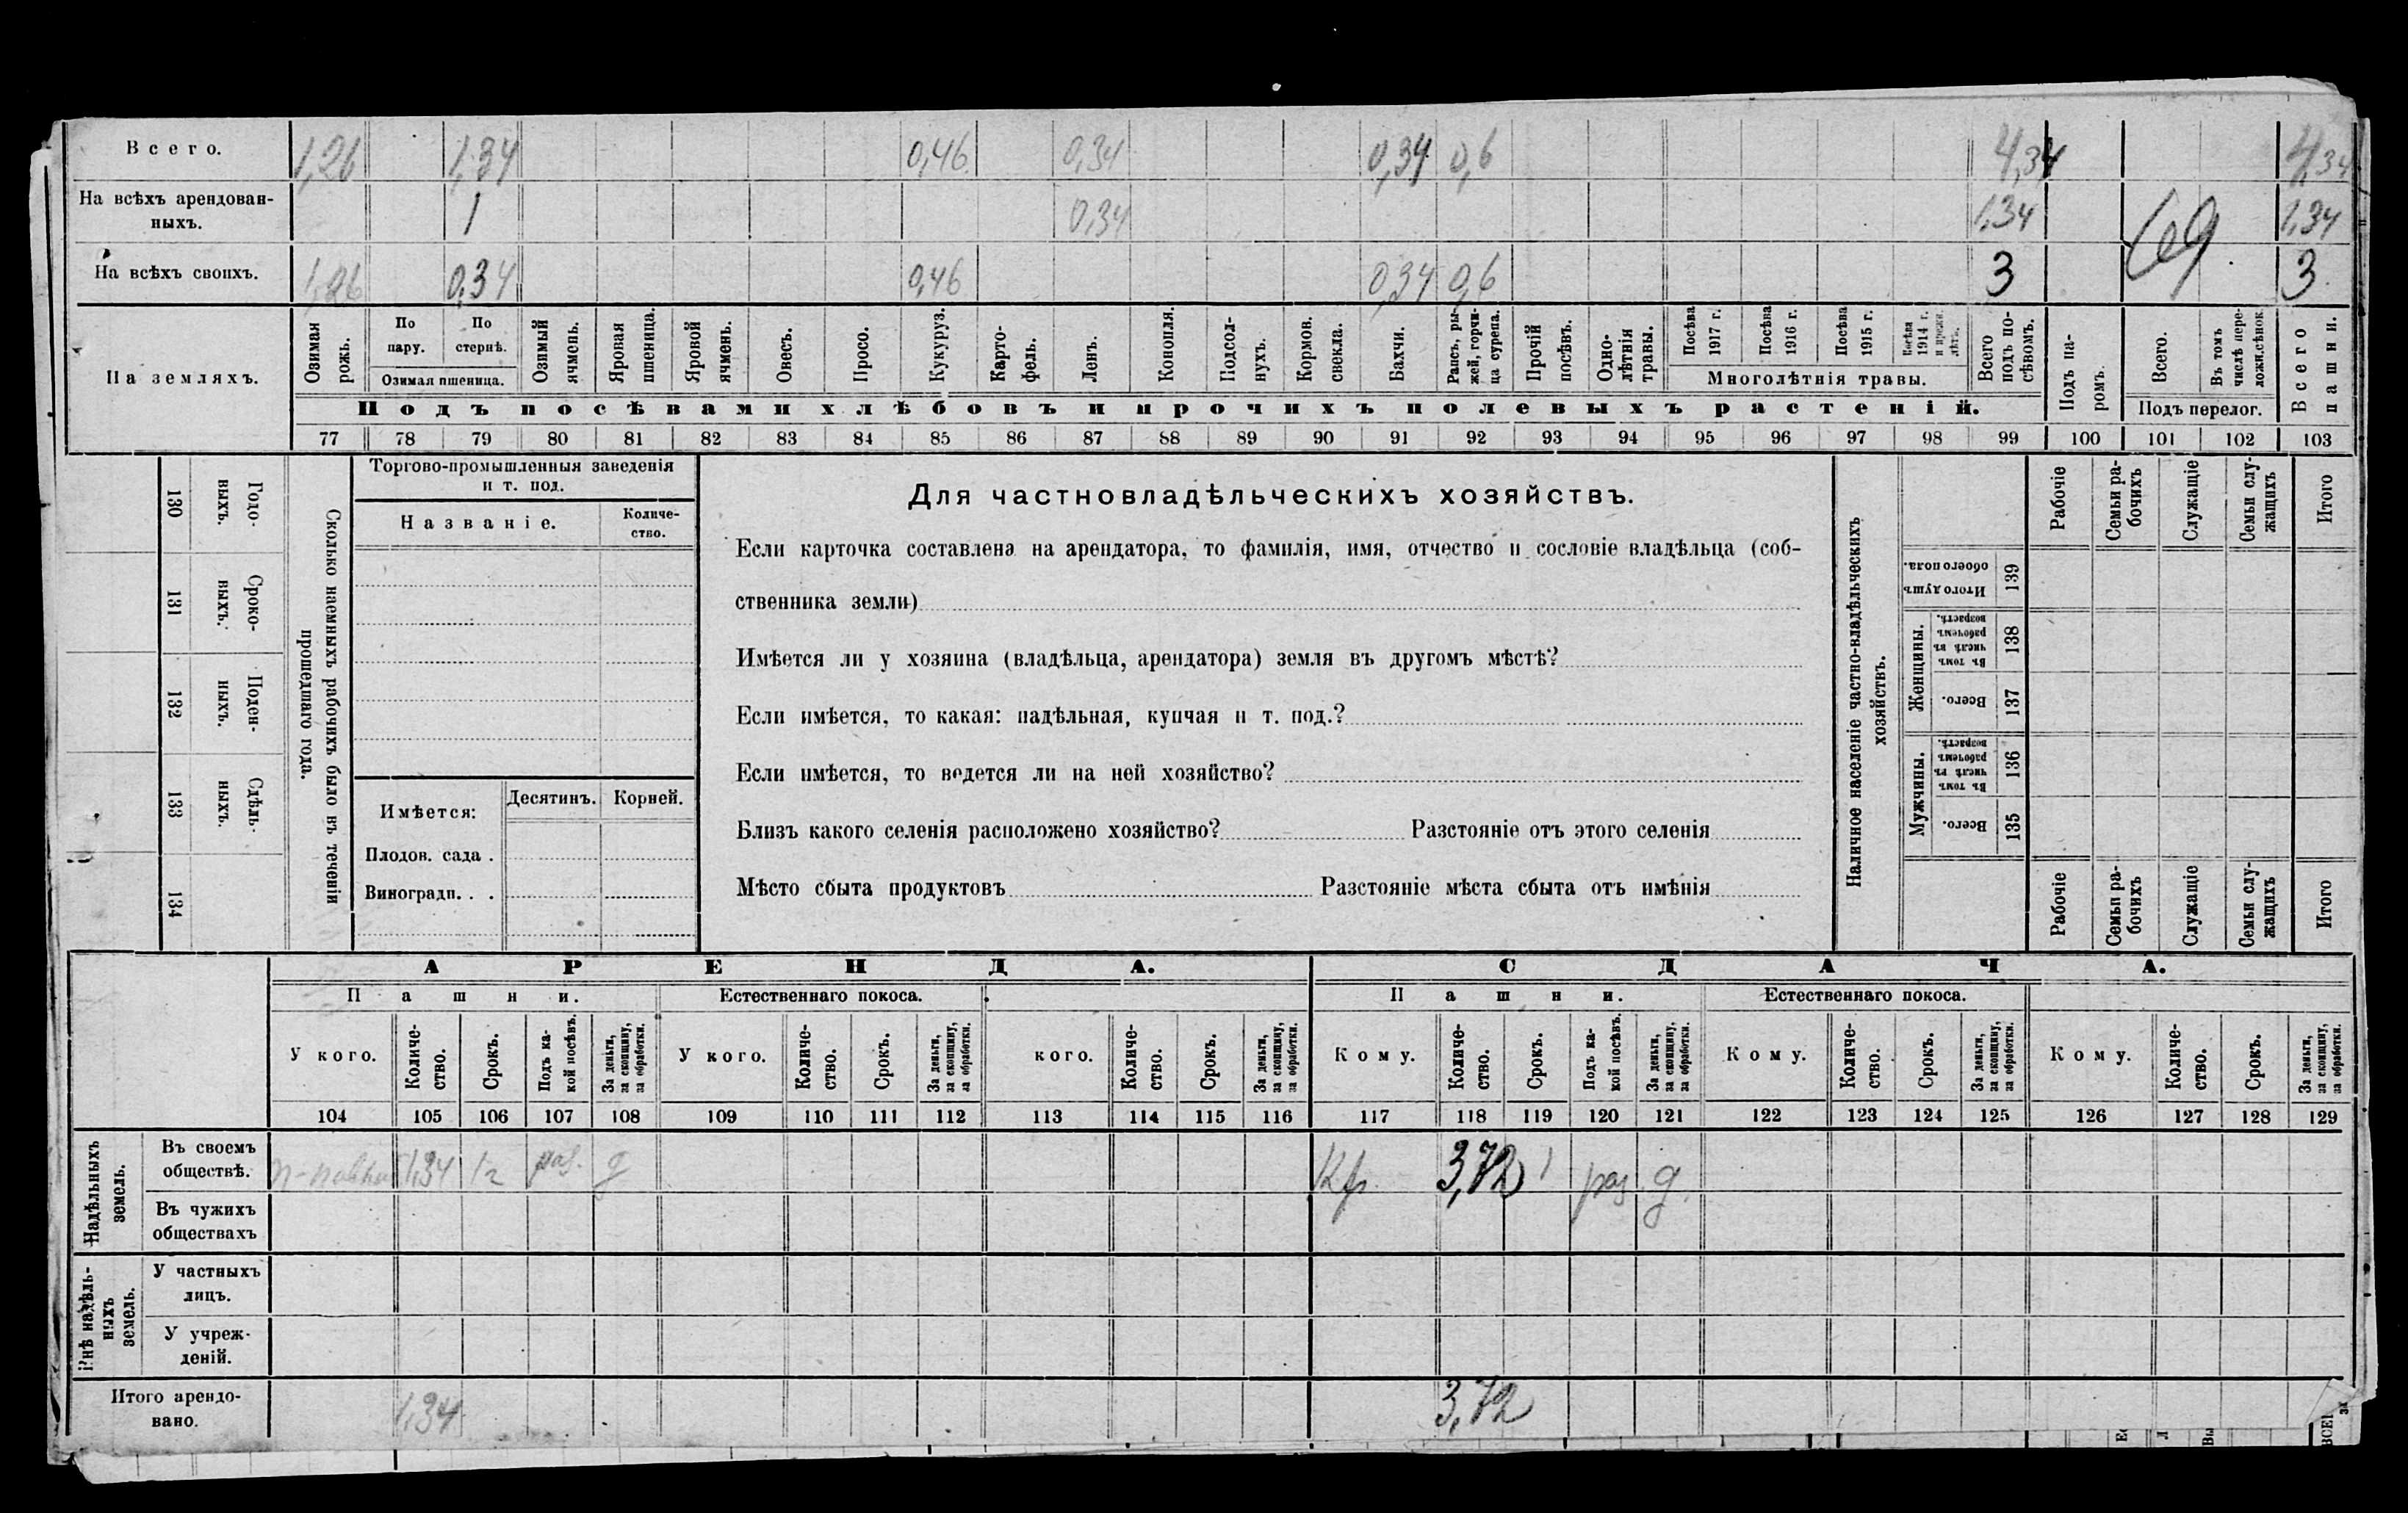 Всего. 1,26 1,34 0,46 0,34 0,34 0,6 4,34 4,34
На всѣхъ арендован-
ныхъ. 1 0,34 1,34 69 1,34
На всѣхъ своихъ. 1,26 0,34 0,46 0,34 0,6 3 3
На земляхъ.
Озимая рожь.
По пару.
По стернѣ.
Озимая пшеница.
Озимый ячмень.
Яровая пшеница.
Яровой ячмень.
Овесъ.
Просо.
Кукуруз.
Карто-
фель.
Ленъ.
Конопля.
Подсол-
нухъ.
Кормов. свекла.
Бахчи.
Рапсъ, ры-
жей, горчи-
ца сурепа.
Прочій посѣвъ.
Одно-
лѣтнія травы.
Посѣва 1917 г.
Посѣва 1916 г.
Посѣва 1915 г.
Посѣва 1914 г. и прежн. лѣтъ.
Многолѣтнія травы.
Всего подъ по-
сѣвомъ.
Подъ па-
ромъ.
Всего.
Въ томъ числѣ пере-
ложн.сѣнок.
Подъ перелог.
Всего пашни.
Подъ посѣвами хлѣбовъ и прочихъ полевыхъ растеній.
77 78 79 80 81 82 83 84 85 86 87 88 89 90 91 92 93 94 95 96 97 98 99 100 101 102 103
130 Годо-
ныхъ.
131 Сроко-
ныхъ.
132 Поден-
ныхъ.
133 Сдѣль-
ныхъ.
134
Сколько наемныхъ рабочихъ было въ теченіи
прошедшаго года.
Торгово-промышленныя заведенія
и т. под.
Названіе.
Количе-
ство.
Имѣется: Десятинъ. Корней.
Плодов. сада .
Виноградн. . .
Для частновладѣльческихъ хозяйствъ.
Если карточка составлена на арендатора, то фамилія, имя, отчество и сословіе владѣльца (соб-
ственника земли)
Имѣется ли у хозяина (владѣльца, арендатора) земля въ другомъ мѣстѣ?
Если имѣется, то какая: надѣльная, купчая и т. под.?
Если имѣется, то ведется ли на ней хозяйство?
Близъ какого селенія расположено хозяйство? Разстояніе отъ этого селенія
Мѣсто сбыта продуктовъ Разстояніе мѣста сбыта отъ имѣнія
Наличное населеніе частно-владѣльческихъ
хозяйствъ.
Рабочіе
Семьи ра-
бочихъ
Служащіе
Семьи слу-
жащихъ
Итого
Итого душъ обоего пола. 139
Женщины.
Въ томъ числѣ въ рабочемъ возрастѣ. 138
Всего. 137
Мужчины.
Въ томъ числѣ въ рабочемъ возрастѣ. 136
Всего. 135
Рабочіе
Семьи ра-
бочихъ
Служащіе
Семьи слу-
жащихъ
Итого
АРЕНДА. СДАЧА.
Пашни. Естественнаго покоса. Пашни. Естественнаго покоса.
У кого.
Количе-
ство.
Срокъ.
Подъ ка-
кой посѣвъ.
За деньги,
за скопщину,
за обработки.
У кого.
Количе-
ство.
Срокъ.
За деньги,
за скопщину,
за обработки.
кого.
Количе-
ство.
Срокъ.
За деньги,
за скопщину,
за обработки.
Кому.
Количе-
ство.
Срокъ.
Подъ ка-
кой посѣвъ.
За деньги,
за скопщину,
за обработки.
Кому.
Количе-
ство.
Срокъ.
За деньги,
за скопщину,
за обработки.
Кому.
Количе-
ство.
Срокъ.
За деньги,
за скопщину,
за обработки.
104 105 106 107 108 109 110 111 112 113 114 115 116 117 118 119 120 121 122 123 124 125 126 127 128 129
Надѣльныхъ
земель.
Въ своемъ
обществѣ. 1,34 1г раз. д Кр. 3,72 1 раз. д.
Въ чужихъ
обществахъ
Внѣ надѣль-
ныхъ
земель.
У частныхъ
лицъ.
У учреж-
деній.
Итого арендо-
вано. 1,34 3,72